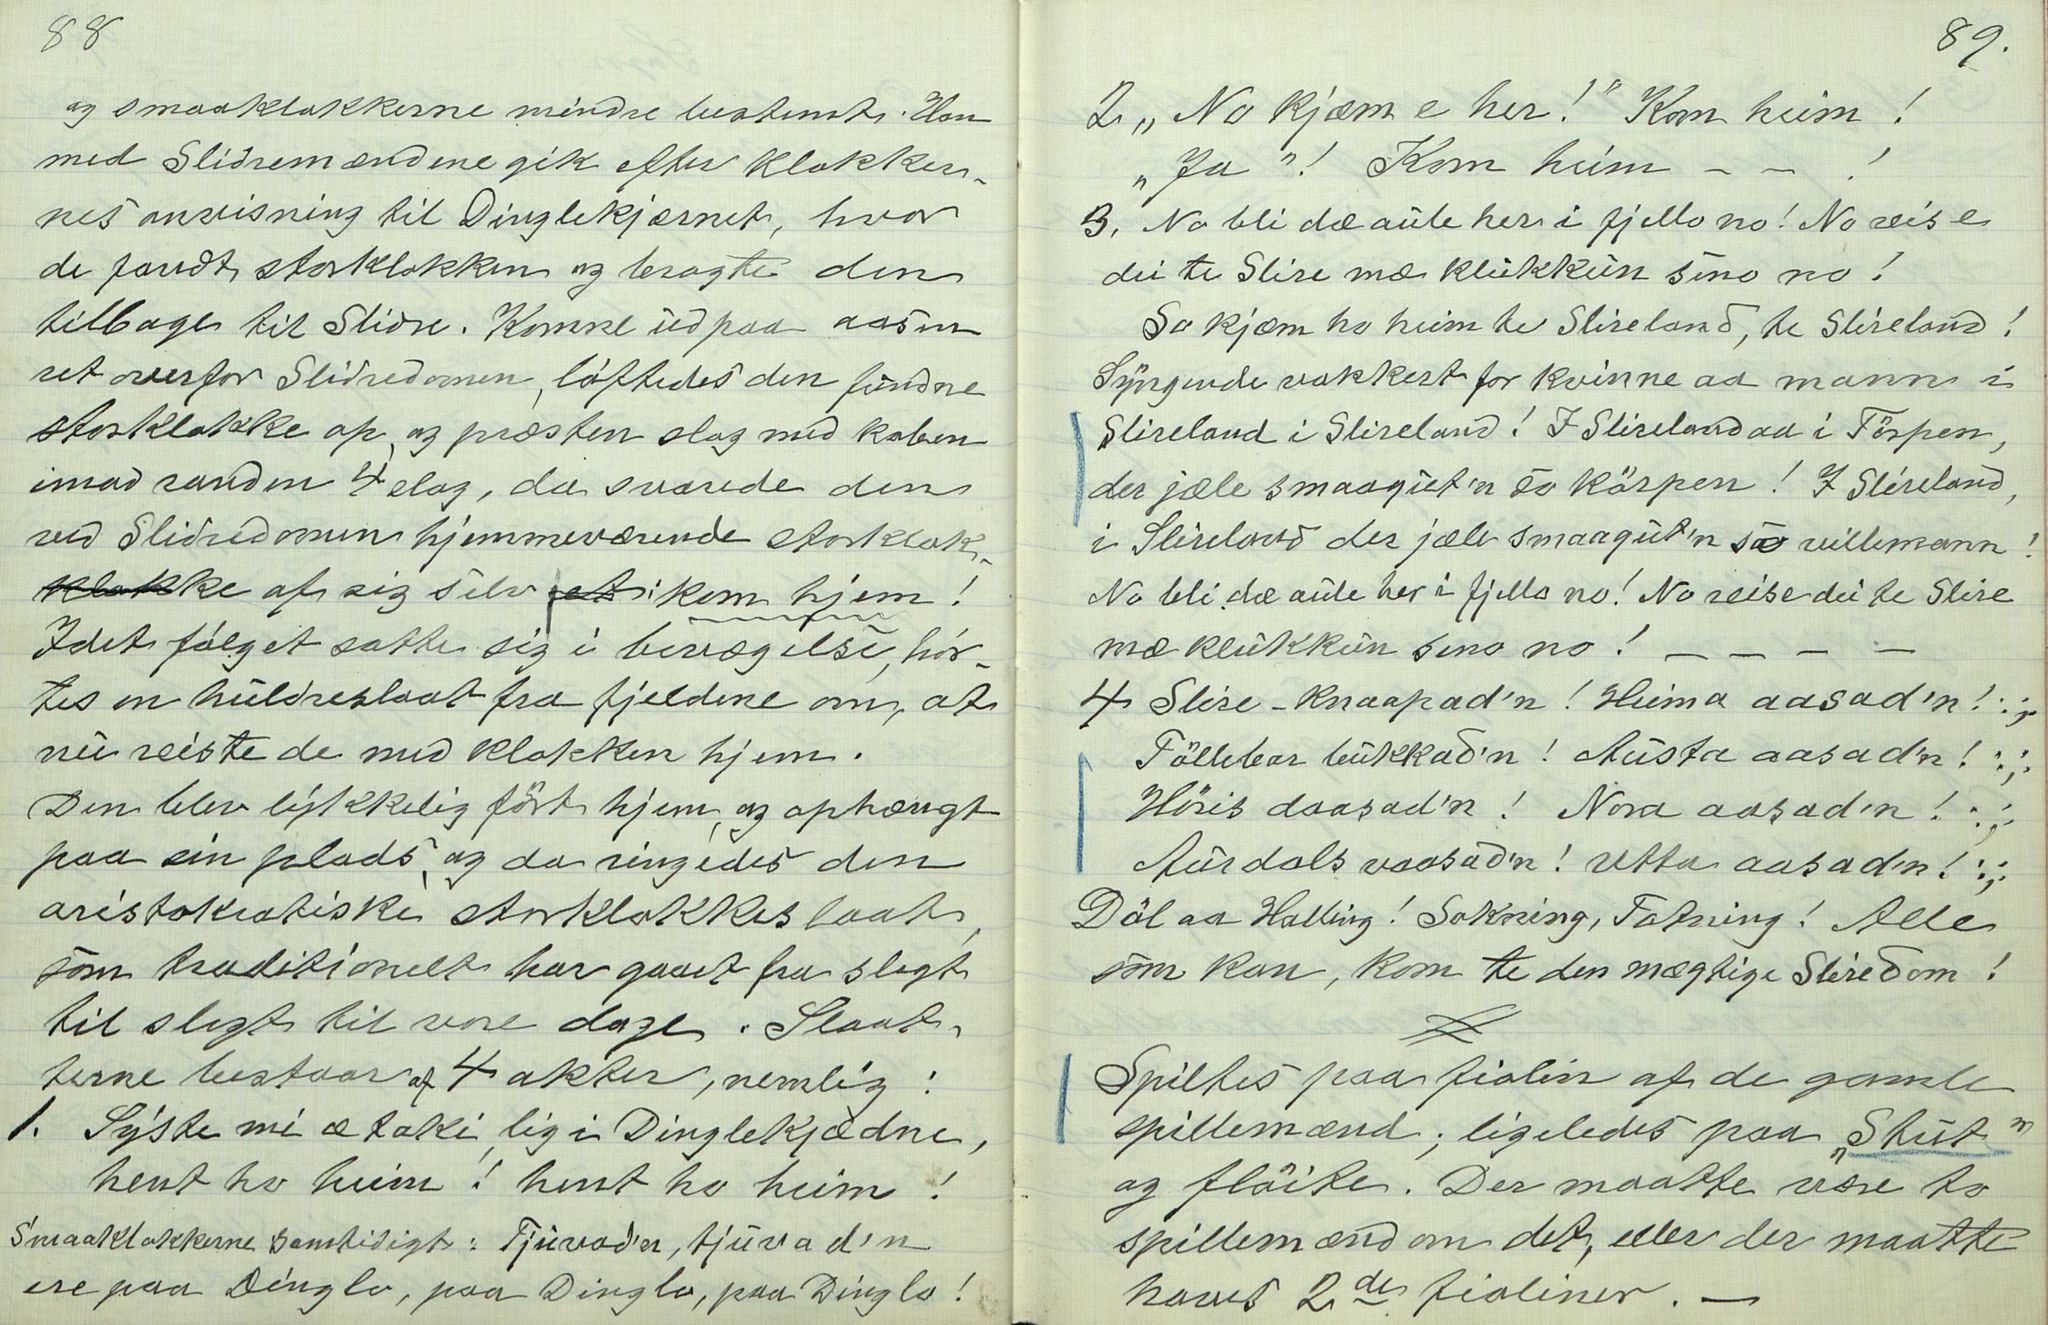 88
og smaaklokkerne mindre bestemt. Han
med Slidremændene gik efter klokker-
nes anvisning til Dinglekjærnet, hvor
de fandt storklokken og bragte den
tilbage til Slidre. Komne ud paa aasen
ret overfor Slidredomen, löftedes den fundne
storklokke op, og præsten slog med kolven
imod randen 4 slag, da svarede den
ved Slidredomen hjemmeværende storklok-
klokke af sig selv: kom hjem!
Idet fölget satte sig i bevægelse, hör-
tes en huldreslaat fra fjeldene om, at
nu reiste de med klokken hjem.
Den blev lykkelig fört hjem, og ophængt
paa sin plads, og da ringedes den
aristokratiske storklokkeslaat,
som traditionelt har gaaet fra slegt
til slegt til vore dage. Slaat-
terne bestaar af 4 akter, nemlig:
1. Syste mi æ taki, lig i Dinglekjædne,
hent ho heim! hent ho heim!
Smaaklokkerne samtidigt: Tjuvad'n, tjuvad'n
ere paa Dinglo, paa Dinglo, paa Dinglo!
89.
2. „No kjæm e her!" Kom heim!
„Ja"! Kom heim – – !
3. No bli dæ aule her i fjello no! No reis e
dei te Slire mæ klukkun sino no!
So kjæm ho heim te Slireland, te Slireland!
Syngende vakkert for kvinne aa mann i
Slireland i Slireland! I Slireland aa i Törpen,
der jæle smaagut'n so körpen! I Slireland,
i Slireland der jæle smaagut'n so villemann!
No bli dæ aule her i fjello no! No reise dei te Slire
mæ klukkun sino no! – – – –
4 Slire-Knaapad'n! Heima aasad'n! :;
Föllebar bukkad'n! Austa aasad'n! :;
Höris daasad'n! Nora aasad'n! :;
Aurdals vaasad'n! Utta aasad'n! :;
Döl aa Halling! Sokning, Totning! Alle
som kan, kom te den mægtige Sliredom!
Spiltes paa fiolin af de gamle
spillemænd; ligeledes paa „Stut"
og flöite. Der maatte være to
spillemænd om det, eller der maatte
haves 2de fioliner. –